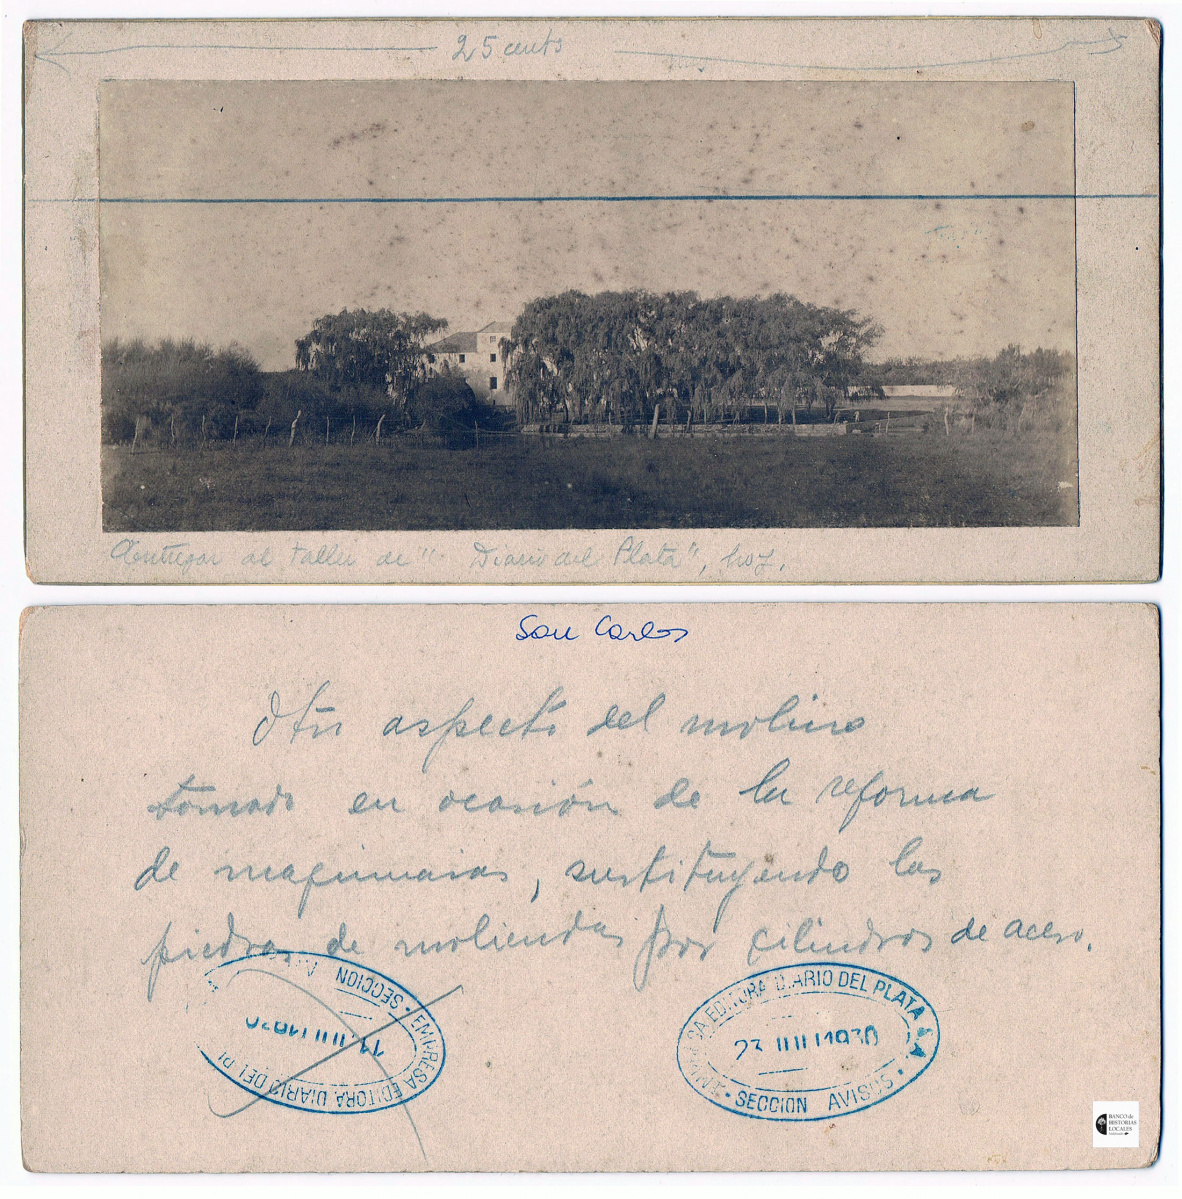 25 cents
Entregar al taller de "Diario del Plata", hoy.
San Carlos
Otro aspecto del molino
tomado en ocasión de la reforma
de maquinarias, sustituyendo las
piedras de moliendas por cilindros de acero.
SECCION
EMPRESA EDITORA DIARIO DEL PL
EDITORA DIARIO DEL PLATA S.A.
23 1930
SECCION AVISOS
BANCO de
HISTORIAS
LOCALES